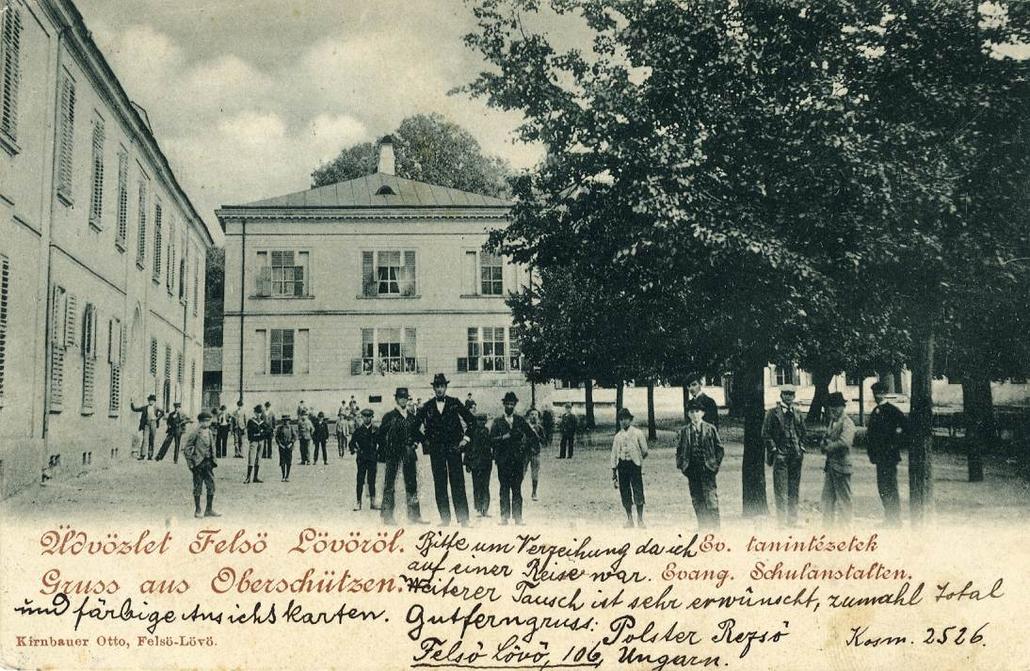 Üdvözlet Felsö Lövöröl.
Gruss aus Oberschützen.
Ev. tanintézetek
Evang. Schulanstalten.
Bitte um Verzeihung da ich
auf einer Reise war.
Weiterer Tausch ist sehr erwünscht, zumahl Total
und färbige Ansichtskarten.
Gutferngruss: Polster Rezsö
Felsö Lövö, 106, Ungarn.
Kosm. 2526.
Kirnbauer Otto, Felsö-Lövö.